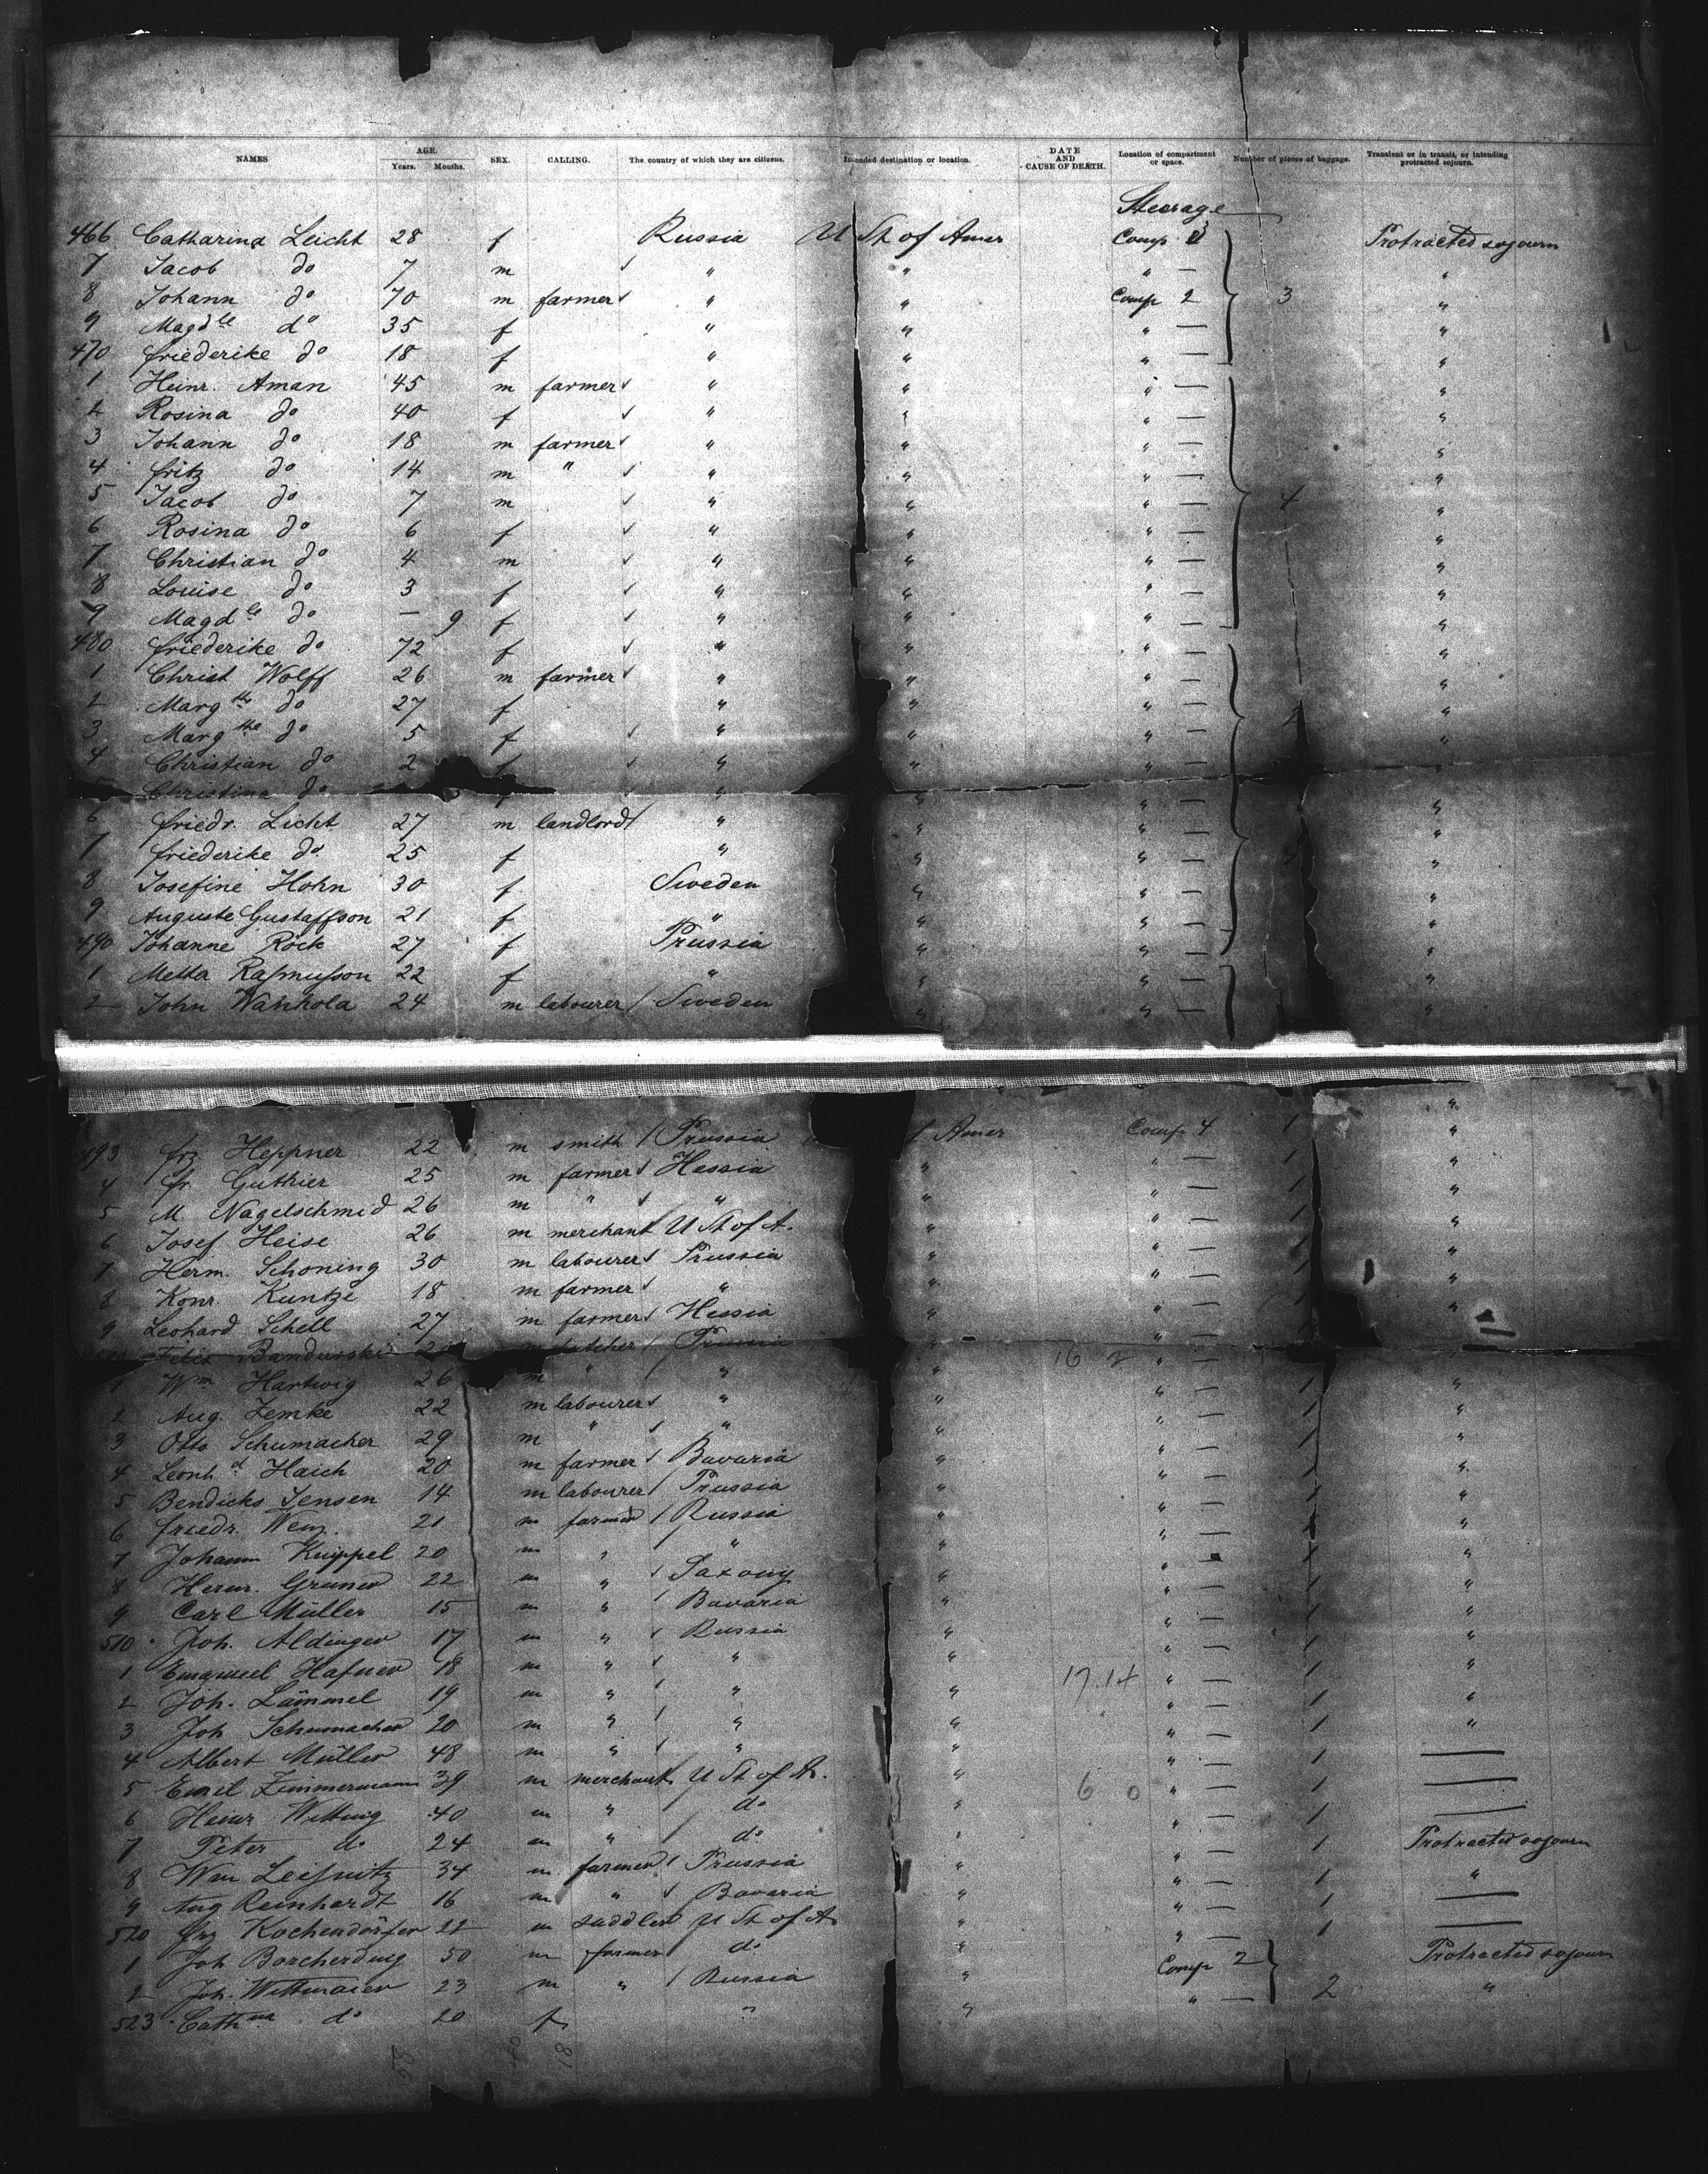 NAMES AGE. Years. Months. SEX. CALLING. The country of which they are citizens. Intended destination or location. DATE AND CAUSE OF DEATH. Location of compartment or space. Number of pieces of baggage. Transient or in transit, or intending protracted sojourn.
Steerage
466 Catharina Leicht 28 f Russia U St of Amer Comp. Protracted sojourn
7 Jacob do 7 m " " " — "
8 Johann do 70 m farmer " " Comp 2 3 "
9 Magdle do 35 f " " " — "
470 Friederike do 18 f " " " — "
1 Heinr. Aman 45 m farmer " " " — "
2 Rosina do 40 f " " " — "
3 Johann do 18 m farmer " " " — "
4 Fritz do 14 m " " " " — "
5 Jacob do 7 m " " " — 4 "
6 Rosina do 6 f " " " — "
7 Christian do 4 m " " " — "
8 Louise do 3 f " " " — "
9 Magdle do — 9 f " " " — "
480 Friederike do 72 f " " " — "
1 Christ Wolff 26 m farmer " " " — "
2 Margthe do 27 f " " " — "
3 Margthe do 5 f " " " — "
4 Christian do 2 " " " — "
5 Christina do " " " — "
6 Friedr. Licht 27 m landlord " " " — "
7 Friederike do 25 f " " " — "
8 Josefine Hohn 30 f Sweden " " — "
9 Auguste Gustaffson 21 f " " " — "
490 Johanne Röck 27 f Prussia " " — "
1 Metta Rasmusson 22 f " " " — "
2 John Wankola 24 m labourer Sweden " " — "
493 Frz Heppner 22 m smith Prussia f Amer Comp 4 1 "
4 Fr. Guthier 25 m farmer Hessia " " — 1 "
5 M. Nagelschmid 26 m " " " " — 1 "
6 Josef Heise 26 m merchant U St of A. " " — 1 "
7 Herm. Schoning 30 m labourer Prussia " " — 1 "
8 Konr. Kuntze 18 m farmer " " " — 1 "
9 Leohard Schell 27 m farmer Hessia " " — 1 "
Felix Bandurski Prussia " " —
1 Wm Hartwig 26 m " " " " — 1 "
2 Aug. Zemke 22 m labourer " " " — 1 "
3 Otto Schumacher 29 m " " " " — 1 "
4 Leonhd Haich 20 m farmer Bavaria " " — 1 "
5 Bendicks Jensen 14 m labourer Prussia " " — 1 "
6 Friedr. Wenz 21 m farmer Russia " " — 1 "
7 Johann Knippel 20 m " " " " — 1 "
8 Herm. Gruner 22 m " Saxony " " — 1 "
9 Carl Müller 15 m " Bavaria " " — 1 "
510 Joh. Aldinger 17 m " Russia " " — 1 "
1 Emanuel Hafner 18 m " " " 17.14 " — 1 "
2 Joh. Lämmel 19 m " " " " — 1 "
3 Joh Schumacher 20 m " " " " — 1 "
4 Albert Müller 48 m " " " " — 1 —
5 Emil Zimmermann 39 m merchant U St of A. " 6 0 " — 1 —
6 Heinr Wittwig 40 m " do " " — 1 —
7 Peter do 24 m " do " " — 1 Protracted sojourn
8 Wm Leissnitz 34 m farmer Prussia " " — 1 "
9 Aug Reinhardt 16 m " Bavaria " " — 1 —
520 Frz Kochendörfer 22 m saddler U St of A " " — 1 —
1 Joh Borcherding 50 m farmer do " Comp 2 Protracted sojourn
2 Joh. Wittmaier 23 m " Russia " " — 2 "
523 Cathna do 20 f " "